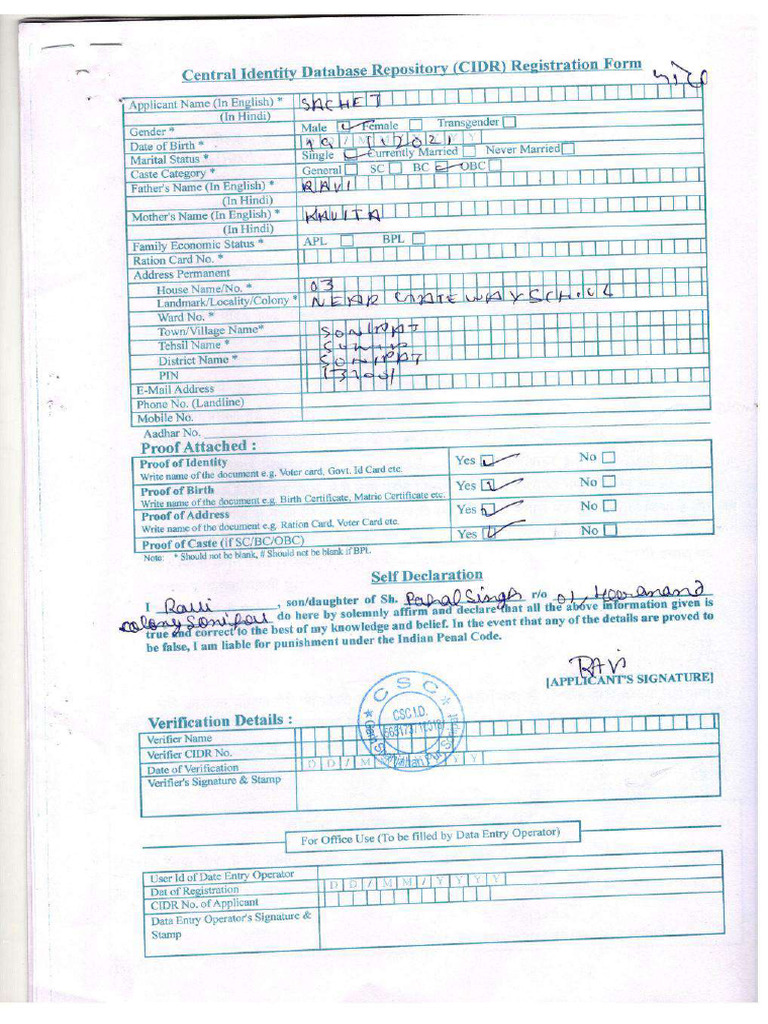 Central Identity Database Repository (CIDR) Registration Form
Applicant Name (In English) * SACHET
(In Hindi)
Gender * Male Female Transgender
Date of Birth * 2021
Marital Status * Single Currently Married Never Married
Caste Category * General SC BC OBC
Father's Name (In English) * RAVI
(In Hindi)
Mother's Name (In English) * KAVITA
(In Hindi)
Family Economic Status * APL BPL
Ration Card No. *
Address Permanent
House Name/No. * 03
Landmark/Locality/Colony * NEAR GATEWAY
Ward No. *
Town/Village Name* SONIPAT
Tehsil Name *
District Name * SONIPAT
PIN 131001
E-Mail Address
Phone No. (Landline)
Mobile No.
Aadhar No.
Proof Attached :
Proof of Identity Yes No
Write name of the document e.g. Voter card, Govt. Id Card etc.
Proof of Birth Yes No
Write name of the document e.g. Birth Certificate, Matric Certificate etc.
Proof of Address Yes No
Write name of the document e.g. Ration Card, Voter Card etc.
Proof of Caste (if SC/BC/OBC) Yes No
Note: * Should not be blank, # Should not be blank if BPL.
Self Declaration
I Ravi, son/daughter of Sh. Singh r/o 01,
colony do here by solemnly affirm and declare that all the above information given is
true and correct to the best of my knowledge and belief. In the event that any of the details are proved to
be false, I am liable for punishment under the Indian Penal Code.
RAVI
[APPLICANT'S SIGNATURE]
CSC
CSC I.D.
Verification Details :
Verifier Name
Verifier CIDR No.
Date of Verification D D / M M Y Y
Verifier's Signature & Stamp
For Office Use (To be filled by Data Entry Operator)
User Id of Date Entry Operator
Dat of Registration D D / M M / Y Y Y Y
CIDR No. of Applicant
Data Entry Operator's Signature &
Stamp